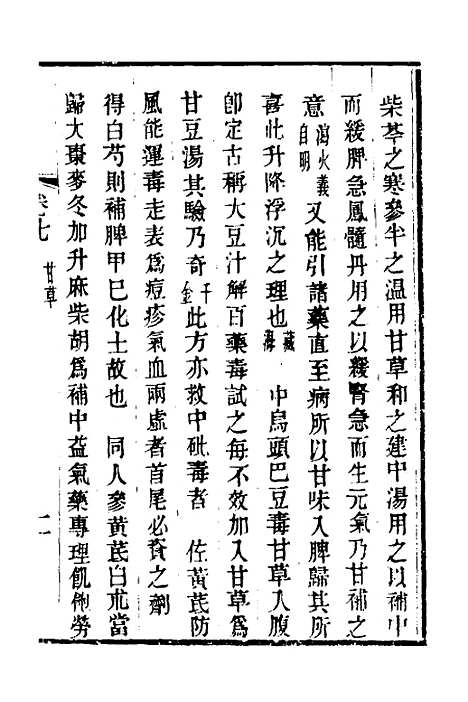 柴芩之寒參半之温用甘草和之建中湯用之以補中
而緩脾急鳳髓丹用之以緩腎急而生元氣乃甘補之
意瀉火義自明又能引諸藥直至病所以甘味入脾歸其所
喜此升降浮沉之理也藏海 中烏頭巴豆毒甘草入腹
卽定古稱大豆汁解百藥毒試之每不效加入甘草爲
甘豆湯其驗乃奇千金此方亦救中砒毒者 佐黄芪防
風能運毒走表爲痘疹氣血兩虛者首尾必資之劑
得白芍則補脾甲巳化土故也 同人參黄芪白朮當
歸大棗麥冬加升麻柴胡爲補中益氣藥專理飢飽勞
卷七 甘草 二